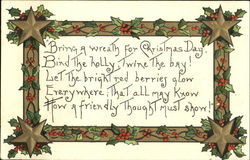 Bring a wreath for Christmas Day!
Bind the holly, Twine the bay!
Let the bright red berries glow
Everywhere. That all may know
How a friendly Thought must show!